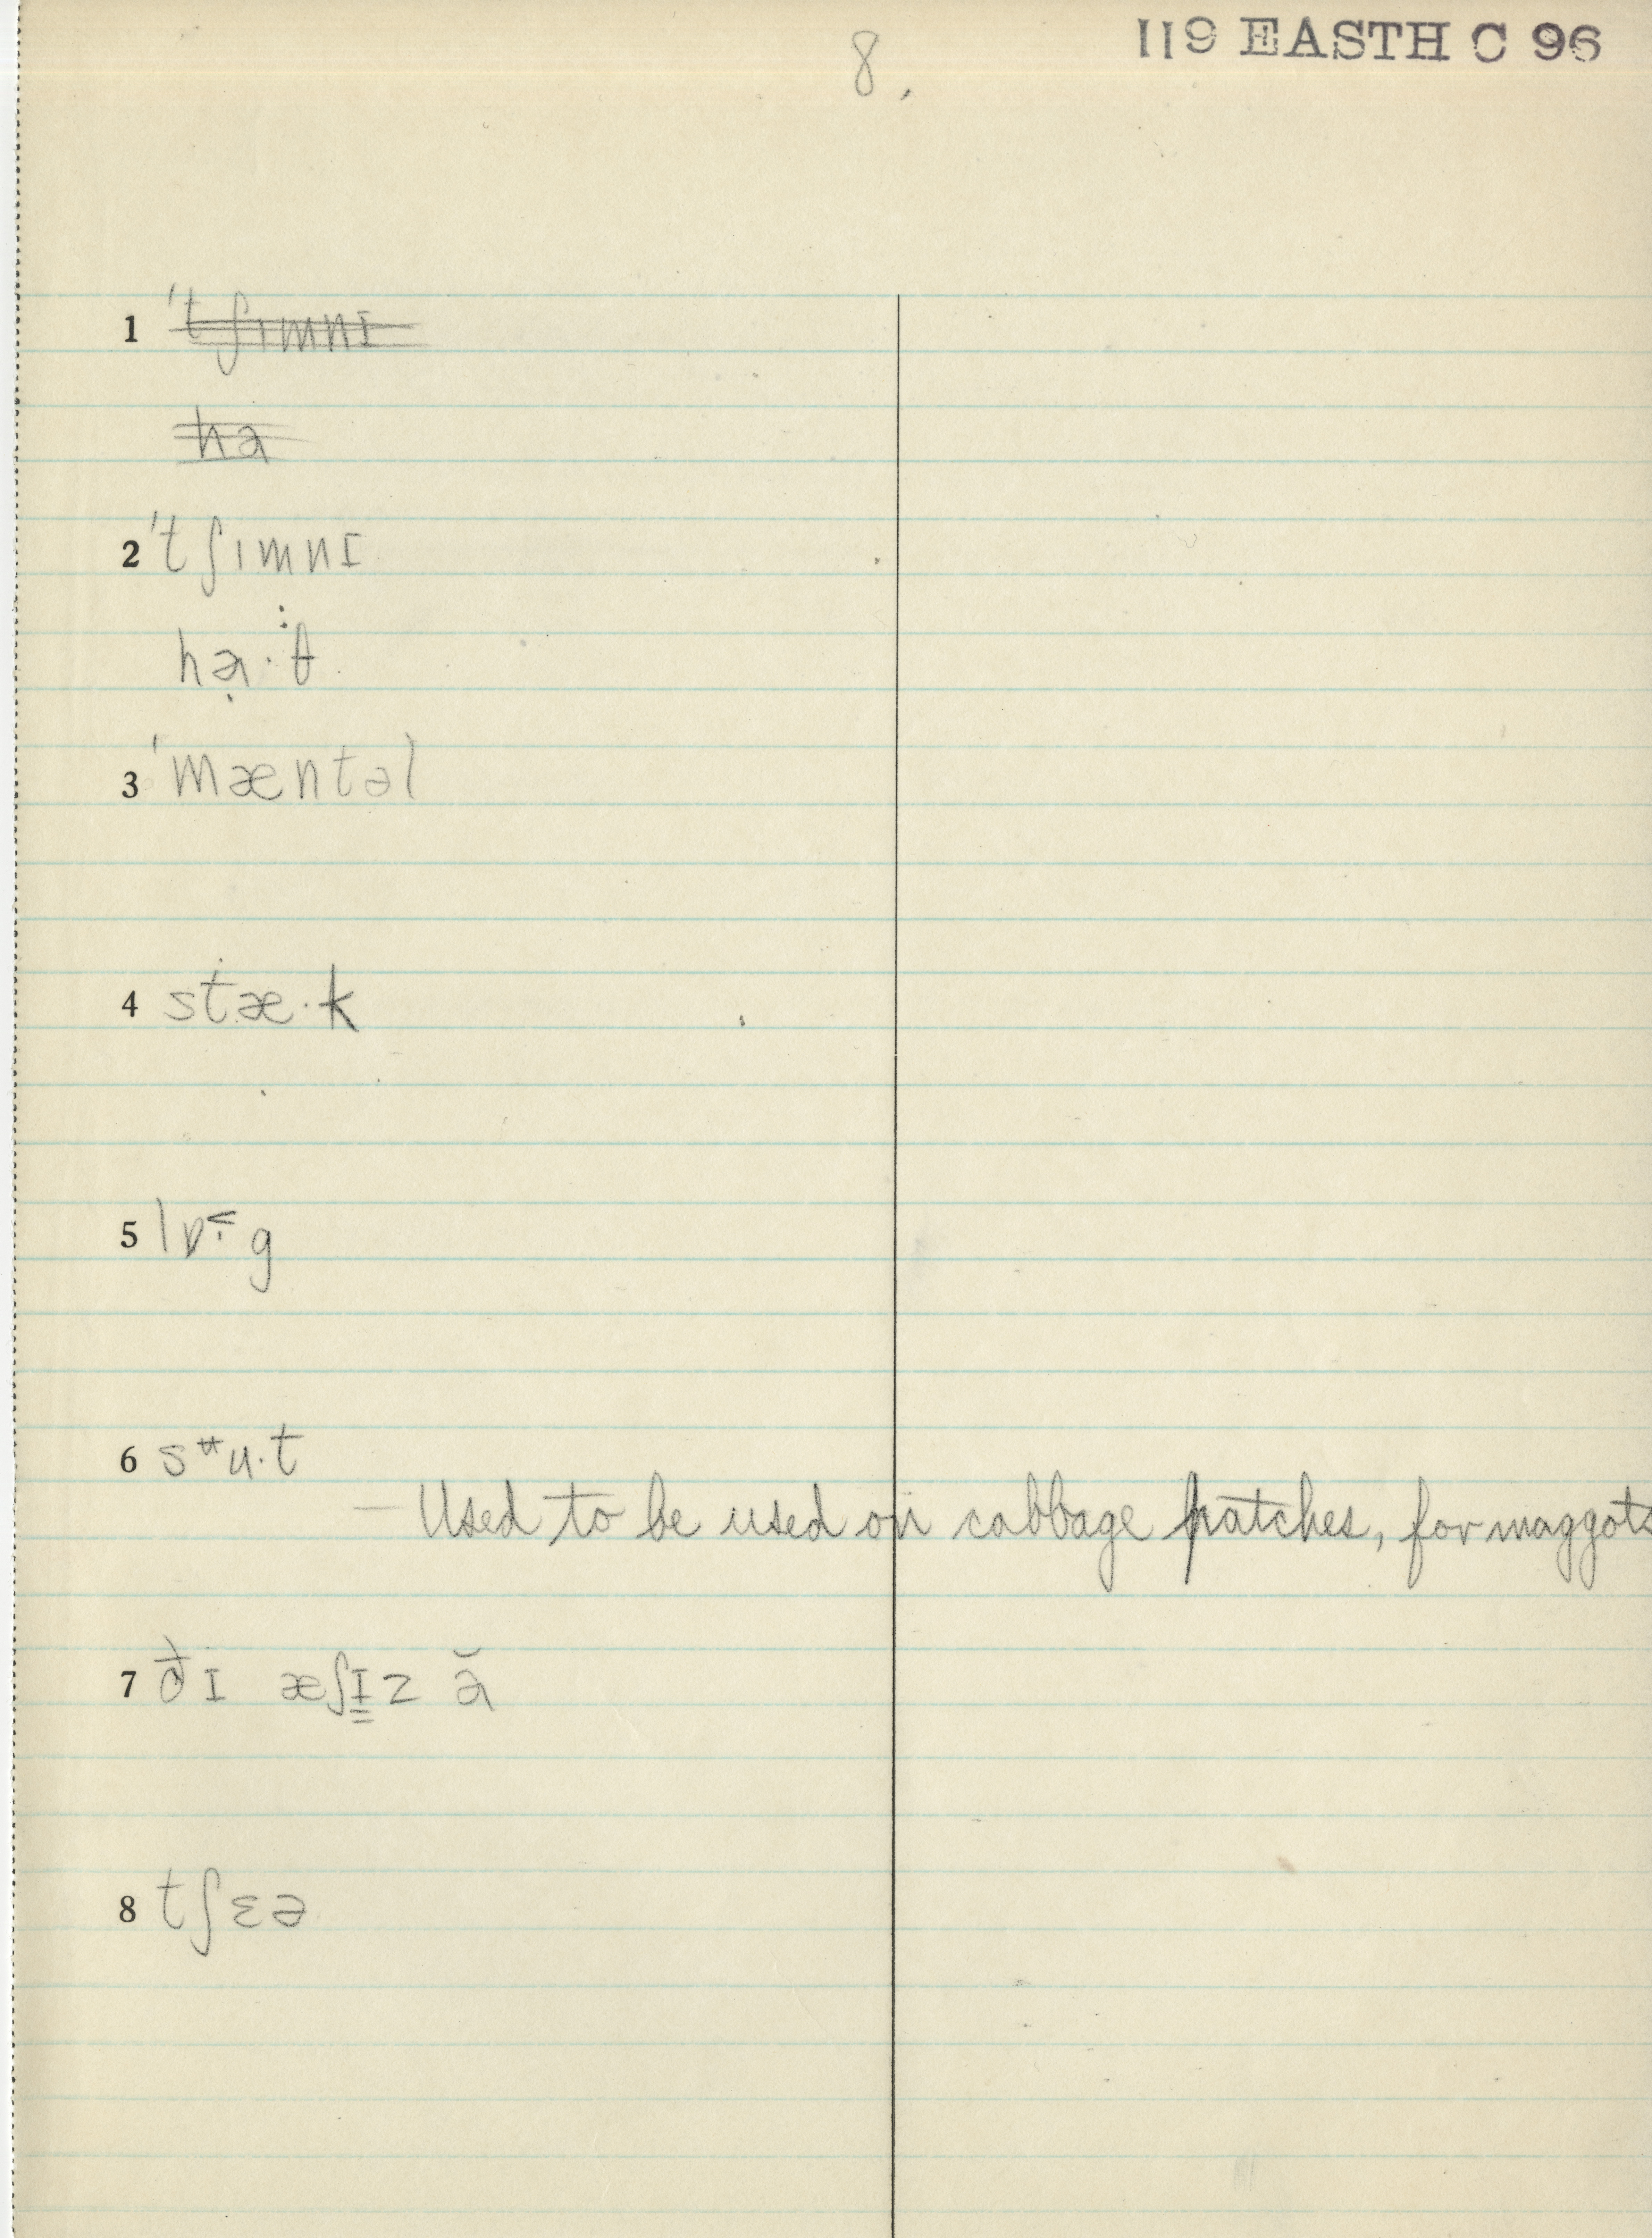 119 EASTH C 96
8.
1 ˈtʃımnɪ
hə
2 ˈtʃımnɪ
hạ·θ
3 ˈmæntəl
4 stæ·k
5 lɒ·g
6 sᵘ̶ʉ·t
— Used to be used on cabbage patches, for maggots
7 ðɪ æʃɪ̳z ă
8 tʃɛə